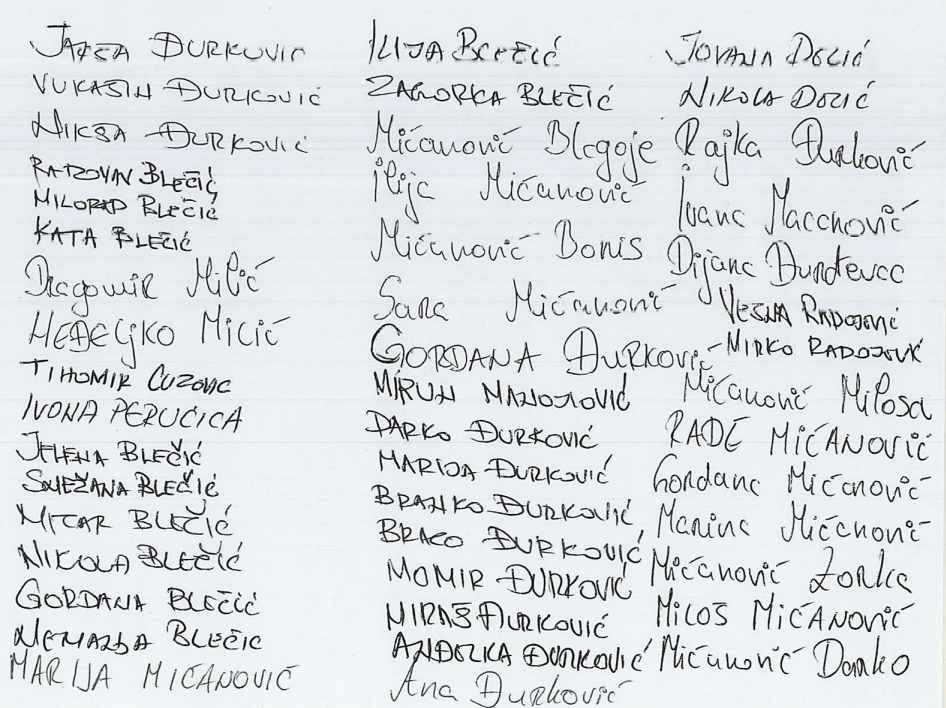 JAKŠA ĐURKOVIĆ
VUKAŠIN ĐURKOVIĆ
NIKŠA ĐURKOVIĆ
RADOVAN BLEČIĆ
MILORAD BLEČIĆ
KATA BLEČIĆ
Dragomir Milić
NEDELJKO MILIĆ
TIHOMIR CUZOVIC
IVONA PERUČICA
JELENA BLEČIĆ
SNEŽANA BLEČIĆ
MITAR BLEČIĆ
NIKOLA BLEČIĆ
GORDANA BLEČIĆ
NEMANJA BLEČIĆ
MARIJA MIĆANOVIĆ
ILIJA BLEČIĆ
ZAGORKA BLEČIĆ
Mićanović Blagoje
Ilija Mićanović
Mićanović Boris
Sara Mićanović
GORDANA ĐURKOVIĆ
MANOJLOVIĆ
DARKO ĐURKOVIĆ
MARIJA ĐURKOVIĆ
BRANKO ĐURKOVIĆ
BRACO ĐURKOVIĆ
MOMIR ĐURKOVIĆ
MIRAŠ ĐURKOVIĆ
ANĐELKA ĐURKOVIĆ
Ana Đurković
JOVANA
NIKOLA
Rajka Đurković
Ivana Macanović
Dijana Đurđevac
VESNA RADOJOVIĆ
MIRKO RADOJOVIĆ
Mićanović Milosa
RADE MIĆANOVIĆ
Gordana Mićanović
Marina Mićanović
Mićanović Zorka
MILOŠ MIĆANOVIĆ
Mićanović Danko